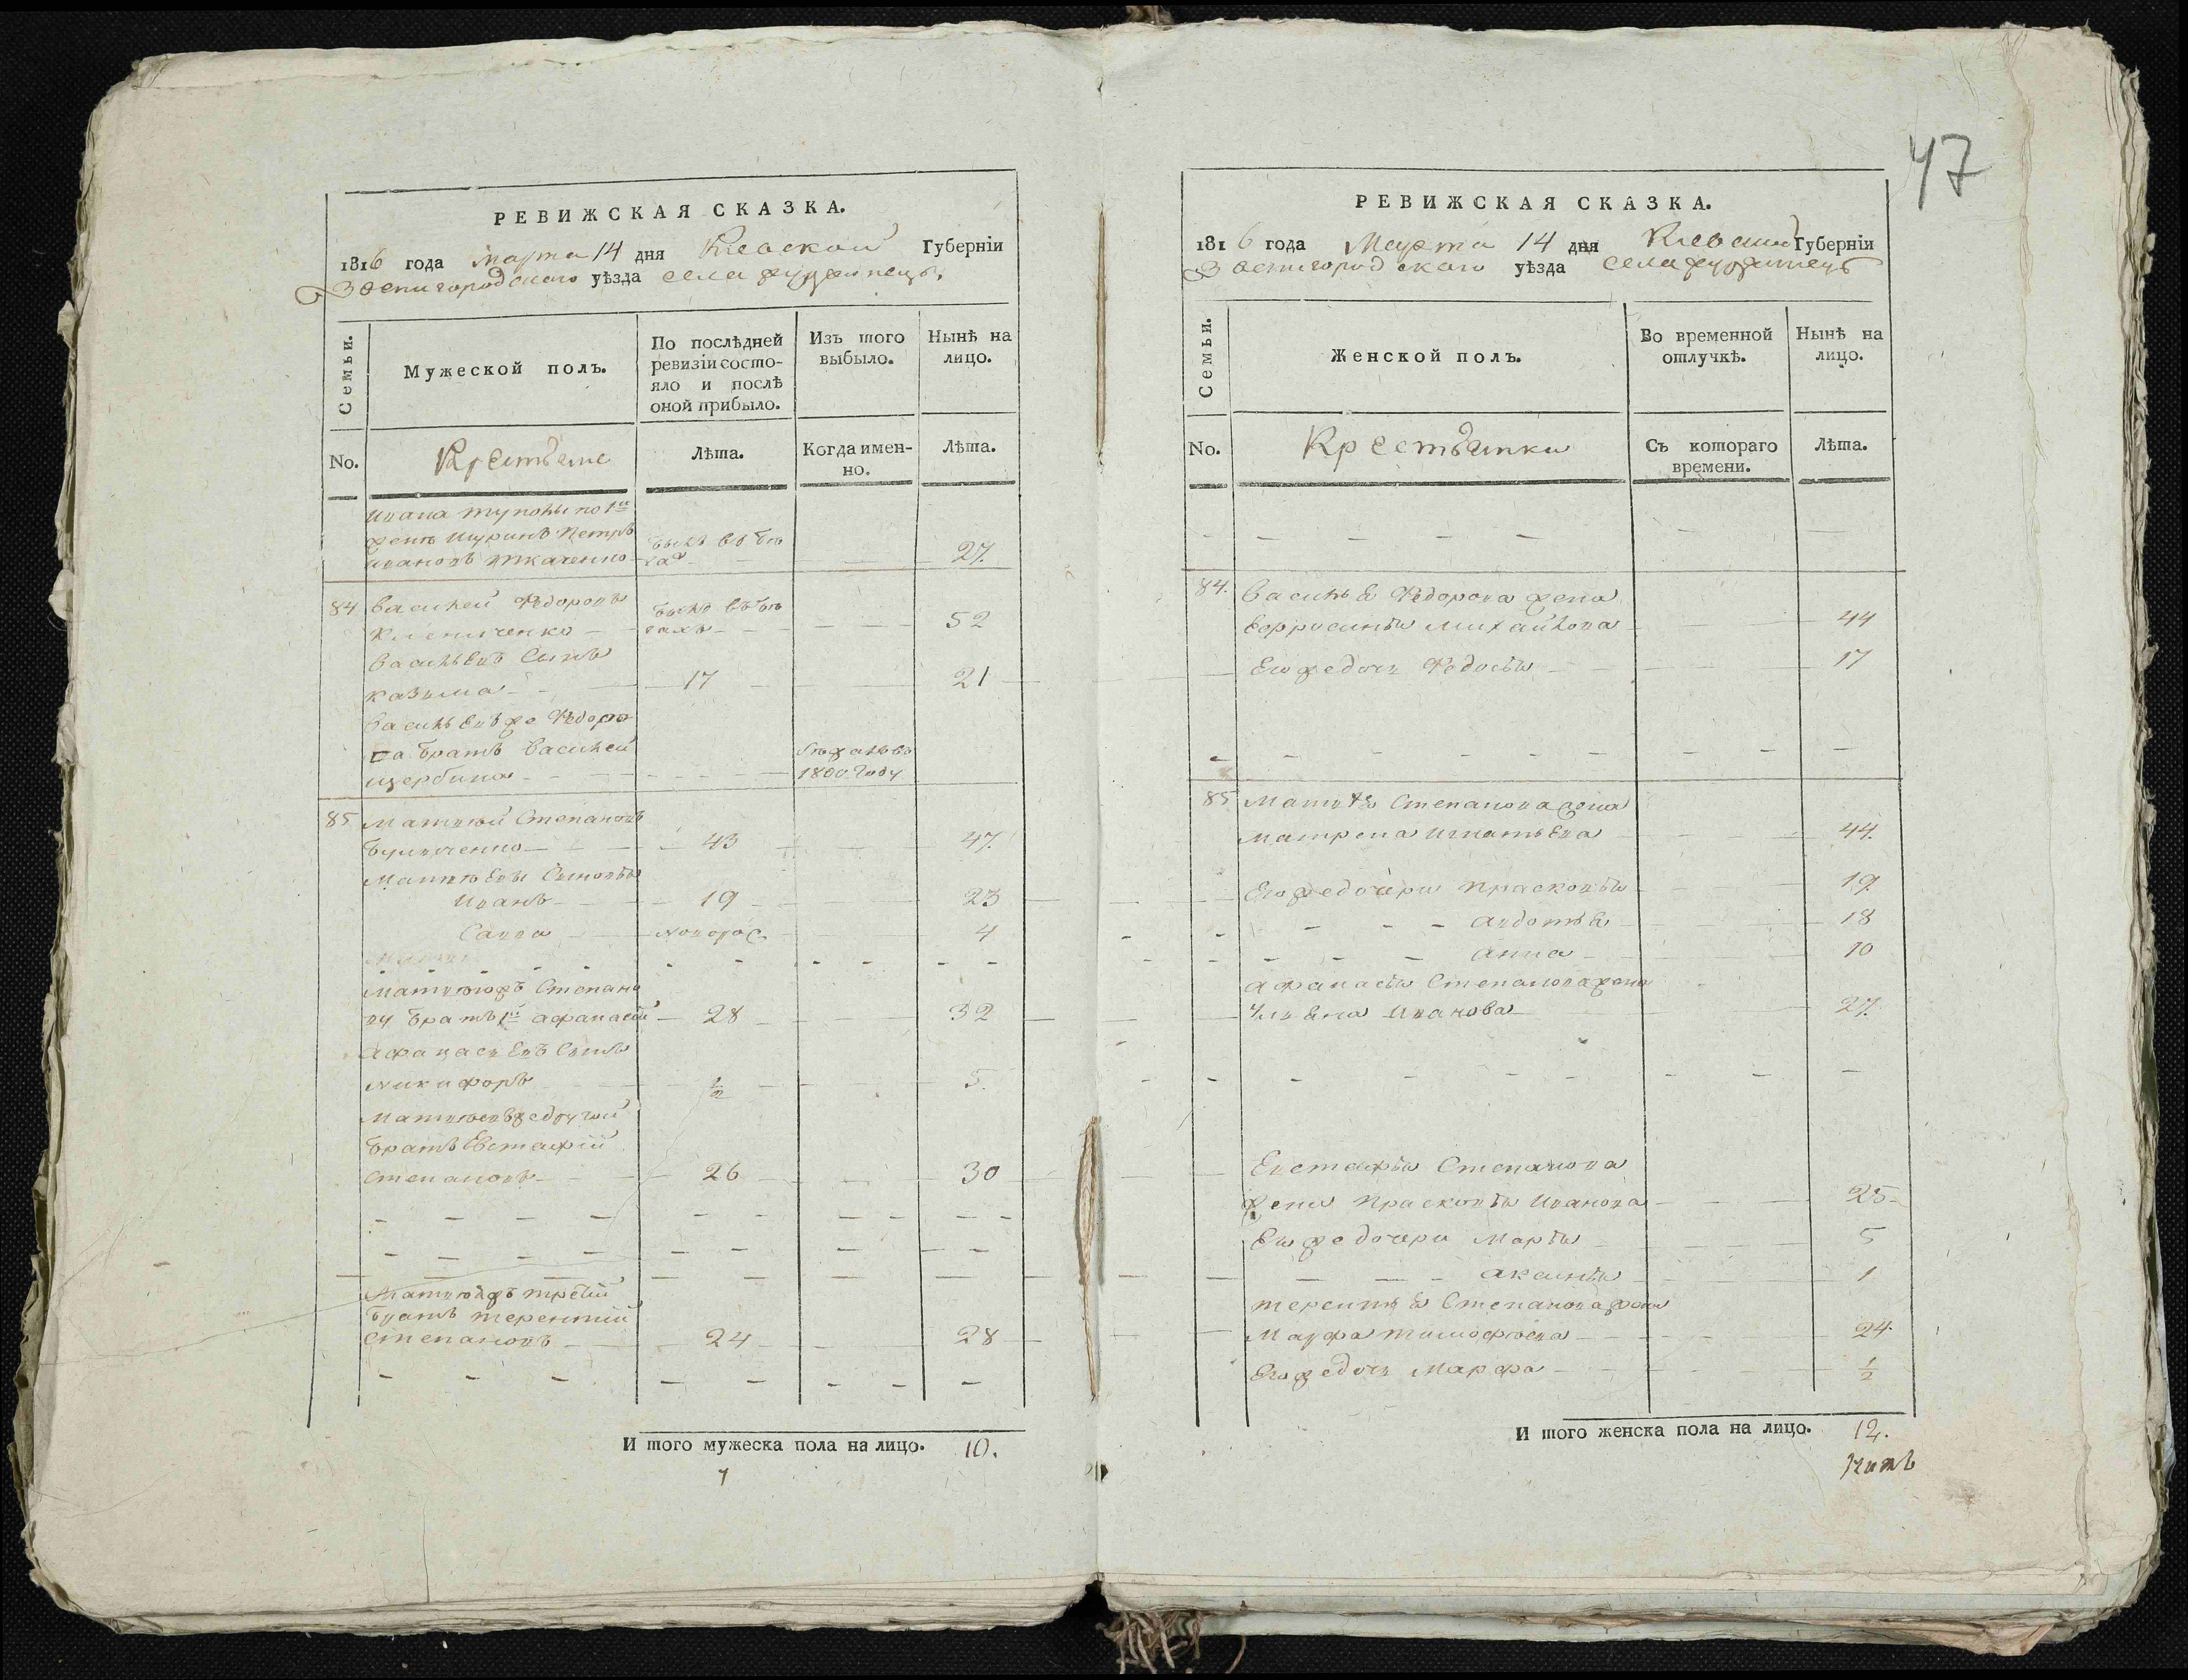 47
РЕВИЖСКАЯ СКАЗКА.
1816 года марта 14 дня Киевской Губерніи
Звенигородскаго уѣзда села
Семьи.
Мужеской полъ.
По послѣдней ревизіи состояло и послѣ оной прибыло.
Изъ того выбыло.
Нынѣ на лицо.
No.
Крестьяне
Лѣта.
Когда именно.
Лѣта.
Ивана по 1й
Петръ
Ивановъ Ткаченко 27.
84 Василей Федоровъ
52
Васильевъ Сынъ
Казьма 17 21
Васильевъ же Федоро
ва братъ Василей
Щербина 1800. Году
85 Матвѣй Степановъ
43 47.
Матвѣевы Сыновья
Иванъ 19 23
Савва новорож 4
Матвѣюжъ Степано
ву братъ 1й Афанасій 28 32
Афанасиевъ Сынъ
Никифоръ ½ 5.
Матвѣевъ же другой
братъ Евстафій
Степановъ 26 30
Матвѣюжъ третій
братъ Терентій
Степановъ 24 28
И того мужеска пола на лицо. 10.
РЕВИЖСКАЯ СКАЗКА.
1816 года Марта 14 дня Киевской Губерніи
Звенигородскаго уѣзда села
Семьи.
Женской полъ.
Во временной отлучкѣ.
Нынѣ на лицо.
No.
Крестьянки
Съ котораго времени.
Лѣта.
84. Василья Федорова жена
Михайлова 44
Его же дочь Федосья 17
85 Матвѣя Степанова жена
Матрена Игнатьева 44.
Его же дочери Прасковья 19
Авдотья 18
Анна 10
Афанасья Степанова жена
Ульяна Иванова 27.
Евстафья Степанова
жена Прасковья Иванова 25
Его же дочери Марья 5
Аксинья 1
Терентья Степанова жена
Марфа Тимофѣева 24
Его же дочь Марфа ½
И того женска пола на лицо. 12.